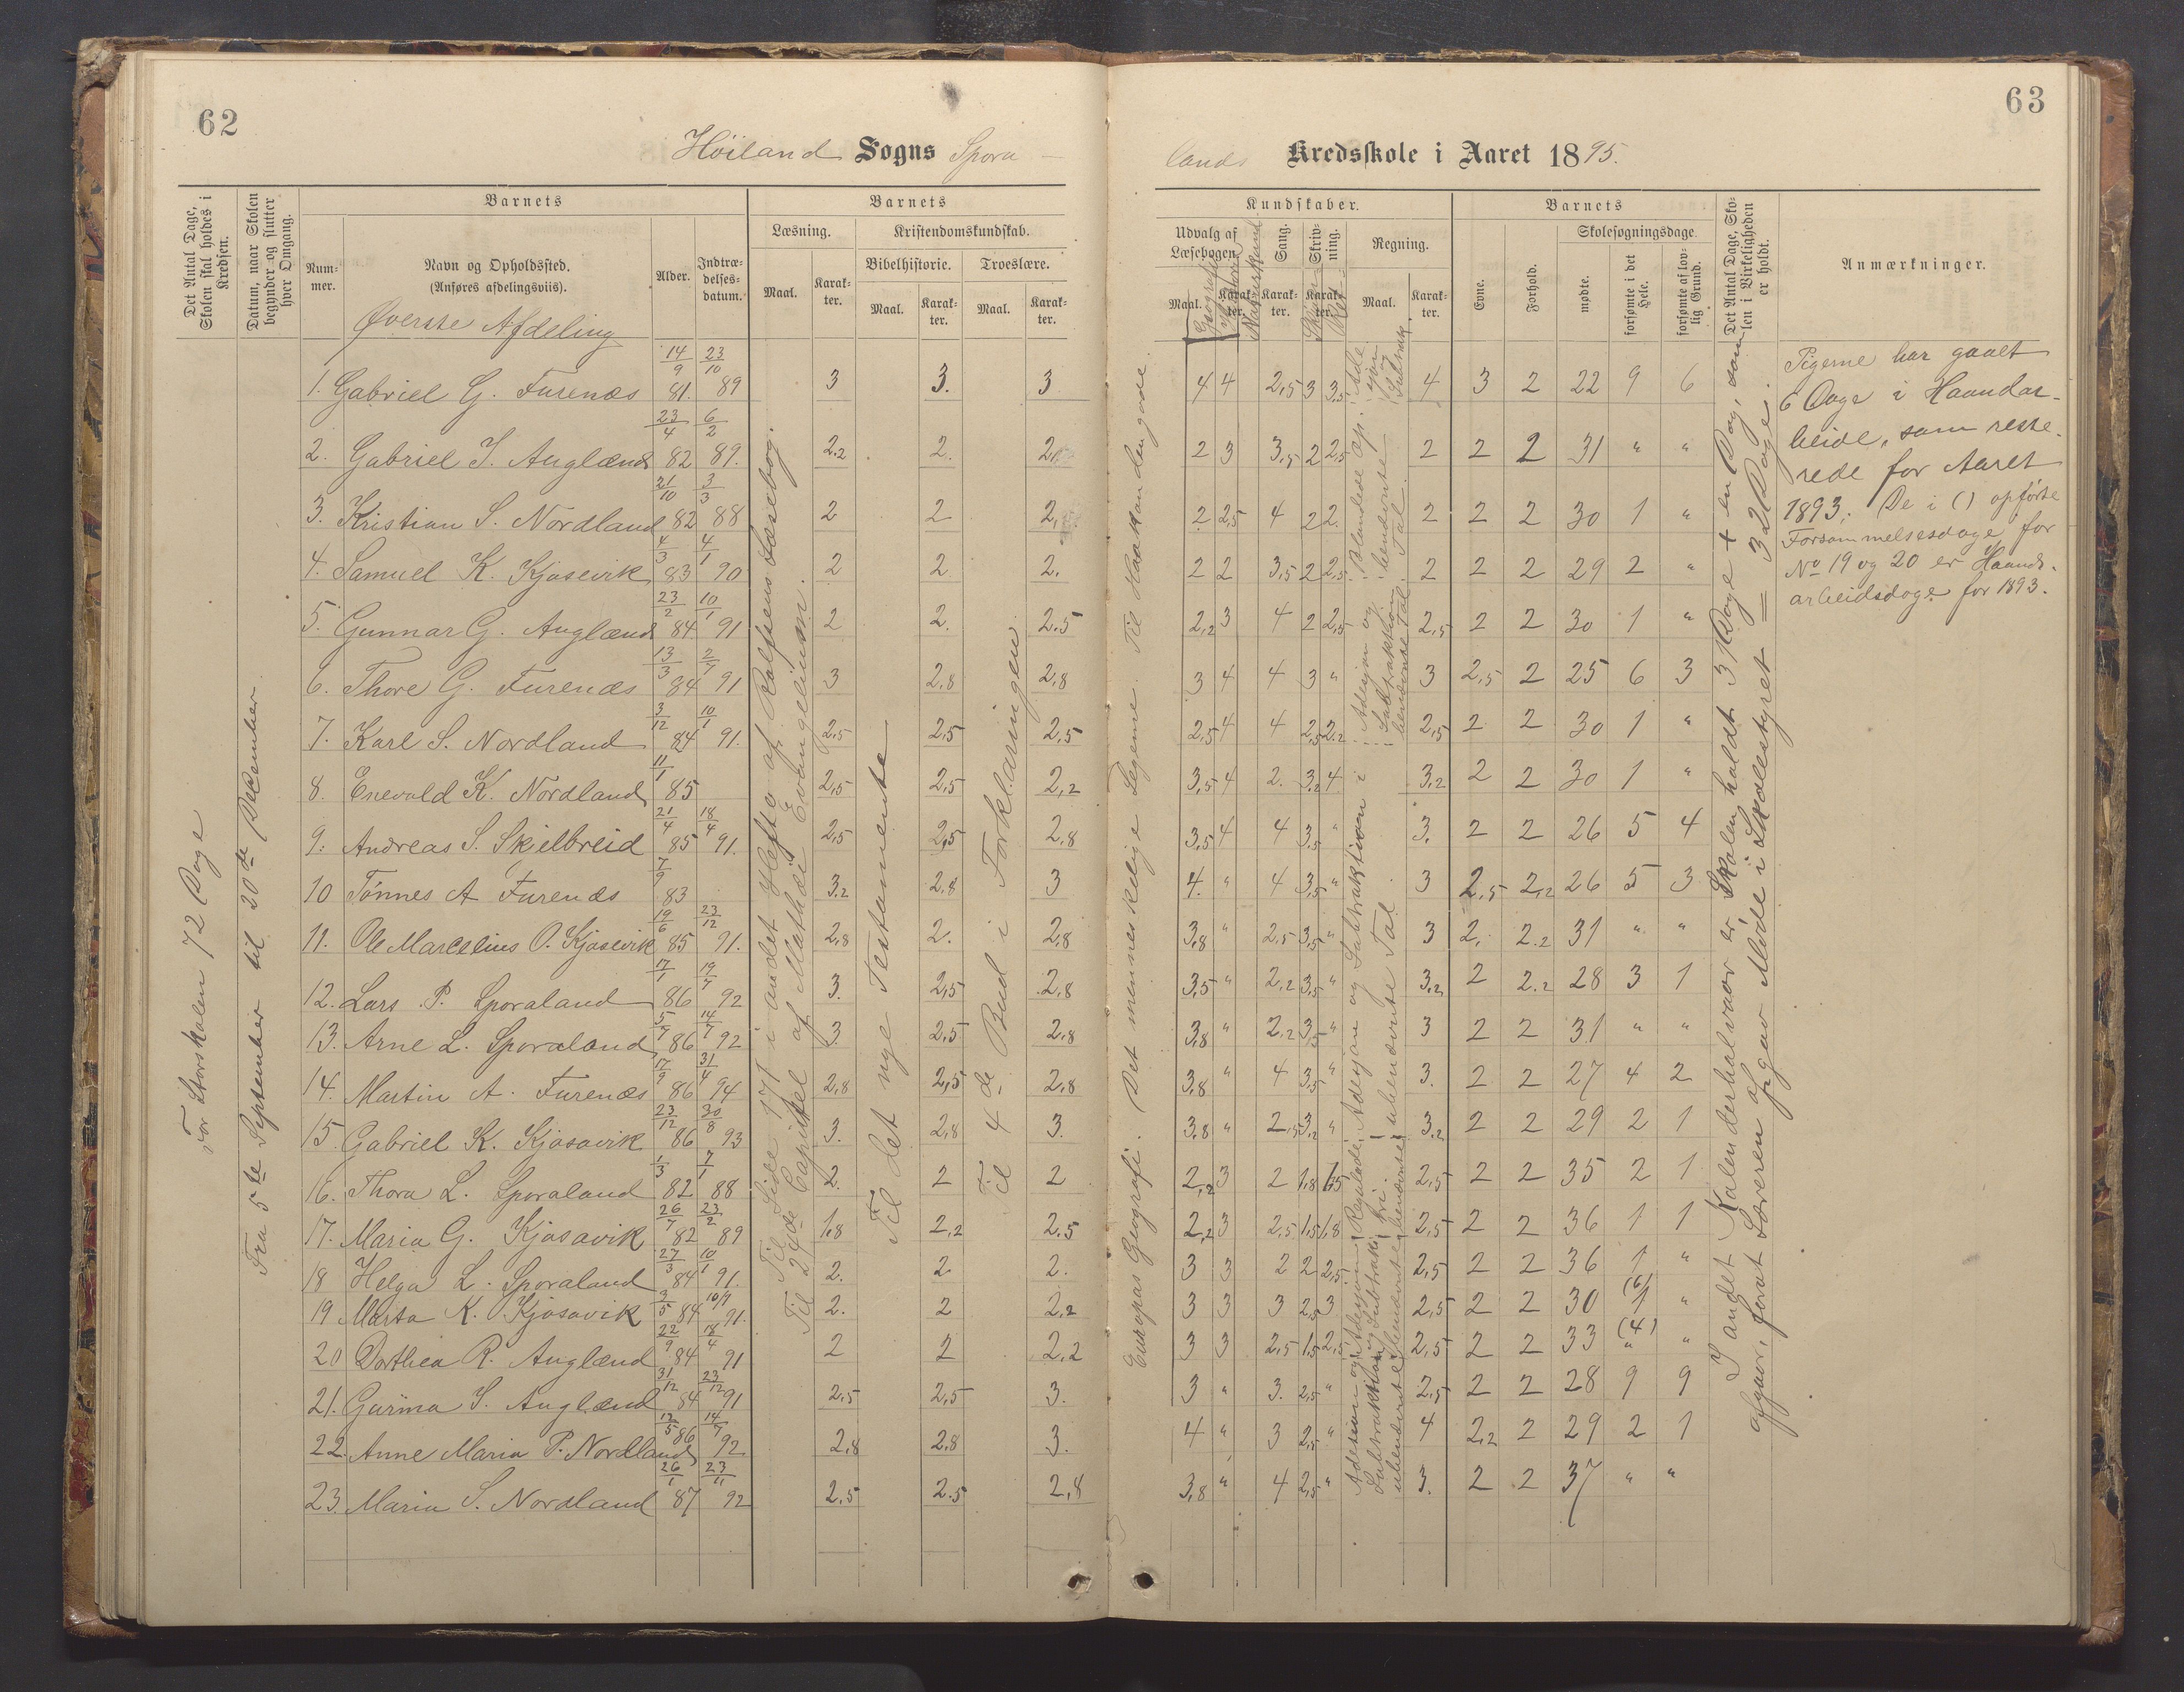 62
Höiland Sogns Spora-
Det Antal Dage, Skolen skal holdes i Kredsen.
Datum, naar Skolen begynder og slutter hver Omgang.
Barnets
Barnets
Num-mer.
Navn og Opholdssted.
(Anføres afdelingsviis).
Alder.
Indtræ-delses-datum.
Læsning.
Kristendomskundskab.
Maal.
Karak-ter.
Bibelhistorie.
Troeslære.
Maal.
Karak-ter.
Maal.
Karak-ter.
Øverste Afdeling
For Storskolen 72 Dage
Fra 5te September til 20de December.
Til Side 171 i andet Hefte af Rolfsens Læsebog.
Til 24de Capittel af Mathæi Evangelium.
Til det nye Testamente
Til 4de Bud i Forklaringen
1. Gabriel G. Furenæs 14/9 81. 23/10 89 3 3. 3
2. Gabriel T. Auglænd 23/4 82 6/2 89. 2.2 2. 2
3. Kristian S. Nordland 21/10 82 3/3 88 2 2 2
4. Samuel K. Kjosevik 4/3 83 4/1 90 2 2 2.
5. Gunnar G. Auglænd 23/2 84 10/1 91 2 2. 2.5
6. Thore G. Furenæs 13/3 84 2/7 91 3 2.8 2.8
7. Karl S. Nordland 3/12 84 10/1 91. 2,5 2,5 2,5
8. Enevald K. Nordland 11/1 85 2,5 2,5 2,2
9. Andreas S. Skilbreid 21/4 85 18/4 91. 2,5 2,5 2,8
10 Tönnes A Furenæs 7/9 83 3.2 2,8 3
11. Ole Marcelius O. Kjosevik 19/6 85 23/12 91. 2,8 2. 2,8
12. Lars P. Sporaland 17/1 86 19/7 92 3. 2,5 2,8
13. Arne L. Sporaland 5/7 86 14/7 92 3 2,5 2,8
14. Martin A. Furenæs 17/9 86 31/4 94 2,8 2,5 2,8
15. Gabriel K. Kjosavik 23/12 86 30/8 93 3. 2,8 3.
16. Thora L. Sporaland 1/3 82 7/1 88 2. 2 2
17. Maria G. Kjosavik 26/7 82 23/2 89 1,8 2,2 2.5
18 Helga L. Sporaland 27/3 84 10/1 91. 2. 2 2.
19 Marta K. Kjosavik 3/5 84 10/1 91. 2. 2 2,2
20 Dorthea R. Auglænd 22/9 84 18/4 91 2 2 2,2
21. Gurina T. Auglænd 31/12 84 23/12 91 2,5 2,5 3.
22. Anne Maria P. Nordland 12/5 86 14/7 92 2,8 2,8 3.
23. Maria S. Nordland 26/1 87 23/11 92 2,5 2.5 2,8
63
lands Kredsskole i Aaret 1895.
Kundskaber.
Barnets
Udvalg af Læsebogen.
Geografi
Historie
Naturkund.
Sang.
Skriv-ning.
Regning.
Maal.
Karak-ter.
Karak-ter.
Karak-ter.
Maal.
Karak-ter.
Evne.
Forhold.
Skolesøgningsdage.
mødte.
forsømte i det Hele.
forsømte af lov-lig Grund.
Det Antal Dage, Sko-len i Virkeligheden er holdt.
Anmærkninger.
Europas Geografi. Det menneskelige Legeme. Til Haakon den gode
I andet Kalenderhalvaar er Skolen holdt 31 Dage + en Dag, som
afgaar, forat Læreren afgav Møde i Skolestyret = 32 Dage.
4 4 2,5 3 3,5 4 3 2 22 9 6
2 3 3,5 2 2,5 2 2 2 31 " "
2 2,5 4 2 2. 2 2 2 30 1 "
2 2 3,5 2 2,5 2 2 2 29 2 "
2,2 3 4 2 2,5 2,5 2 2 30 1 "
3 4 4 3 " 3 2,5 2 25 6 3
2,5 4 4 2,5 2.2 2,5 2 2 30 1 "
3,5 4 2. 3,2 4 3,2 2 2 30 1 "
3,5 4 4 3,5 " 3. 2 2 26 5 4
4. " 4 3,5 " 3 2,5 2,2 26 5 3
3,8 " 2,5 3,5 " 3 2. 2.2 31 " "
3,5 " 2,2 3,5 " 3,2 2 2.2 28 3 1
3,8 " 2,2 3,5 " 3 2 2 31 " "
3,8 " 4 3,5 " 3. 2 2 27 4 2
3,8 " 2,5 3,2 " 3,2 2 2 29 2 1
2,2 3 2 1,8 1,5 2,5 2 2 35 2 1
2,2 3 2,5 1,5 1,8 2,5 2 2 36 1 1
3 3 2 2 2,5 2,5 2 2 36 1 "
3 3 3 2,5 3 2,5 2 2 30 (6) 1 "
3 3 2,5 1,5 2,5 2,5 2 2 33 (4) " "
3 " 3. 2,5 " 2,5 2 2 28 9 9
4 " 3 2,5 " 4 2,2 2 29 2 1
3,8 " 4 2,5 " 3. 2 2 37 " "
Pigerne har gaaet
6 Dage i Haandar-
beide, som reste-
rede for Aaret
1893. De i () opførte
Forsømmelsesdage for
No 19 og 20 er Haand-
arbeidsdage for 1893.